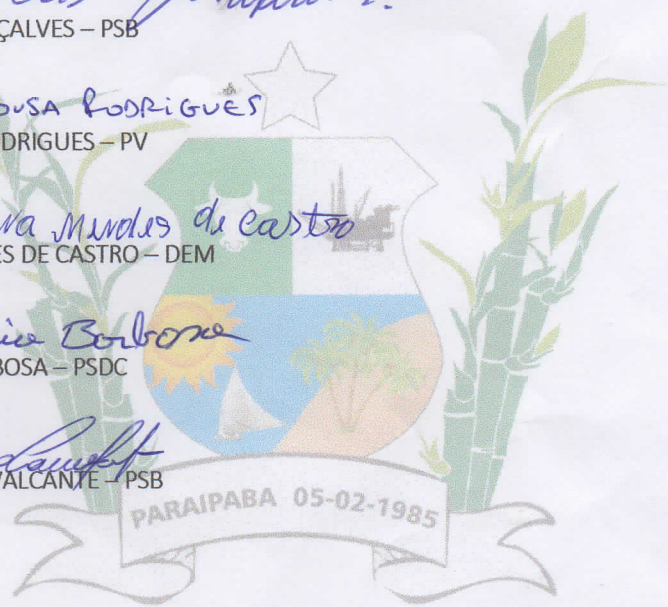 ÇALVES – PSB
OUSA RODRIGUES
DRIGUES – PV
va Mendes de Castro
ES DE CASTRO – DEM
Barbosa
BOSA – PSDC
VALCANTE – PSB
PARAIPABA 05-02-1985